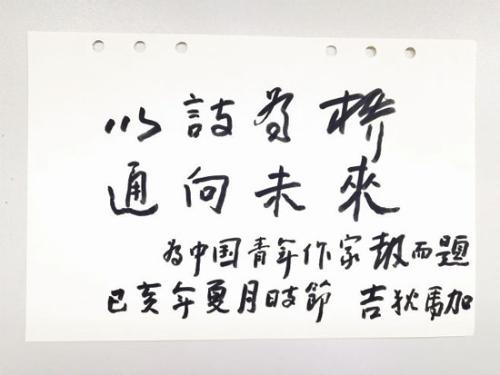 以詩為桥
通向未來
為中国青年作家報而題
己亥年夏月時節 吉狄馬加